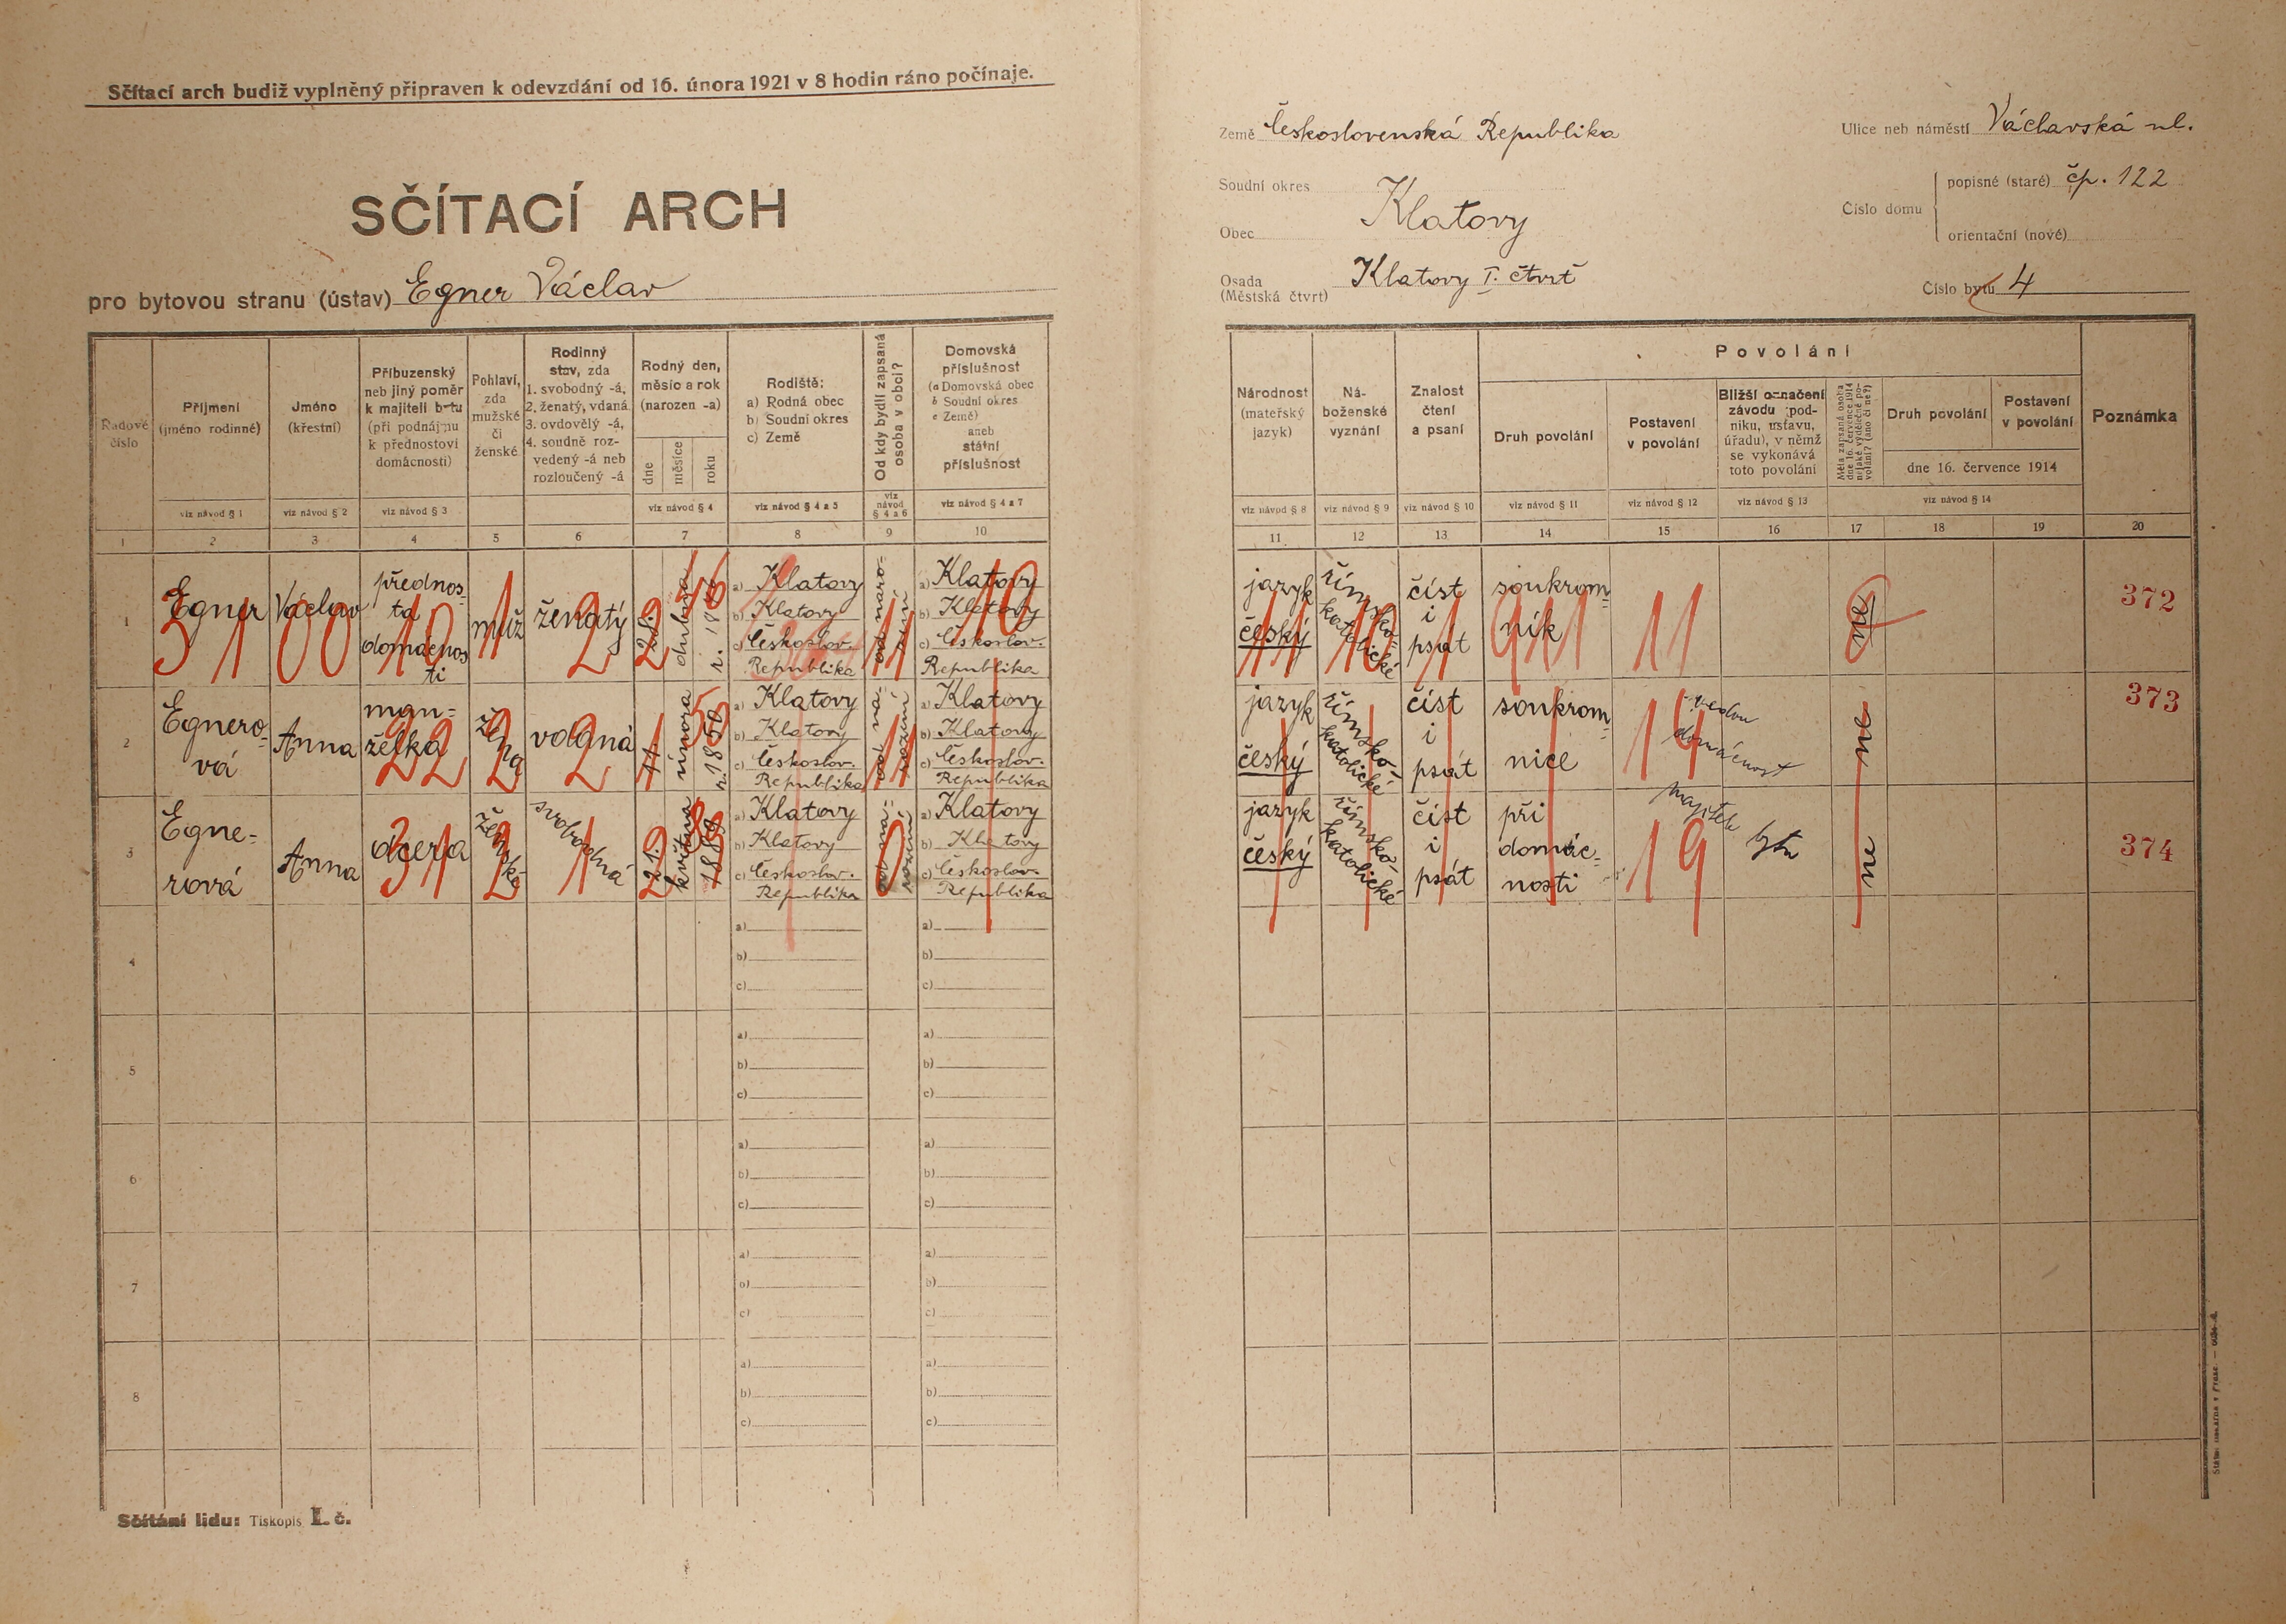 Sčítací arch budiž vyplněný připraven k odevzdání od 16. února 1921 v 8 hodin ráno počínaje.
SČÍTACÍ ARCH
pro bytovou stranu (ústav) Egner Václav
Země Československá Republika
Soudní okres
Obec
Klatovy
Osada
(Městská čtvrt)
Klatovy I. čtvrť
Ulice neb náměstí Václavská ul.
Číslo domu
popisné (staré) čp. 122
orientační (nové)
Číslo bytu 4
Řadové
číslo
Příjmení
(jméno rodinné)
viz návod § 1
Jméno
(křestní)
viz návod § 2
Příbuzenský
neb jiný poměr
k majiteli bytu
(při podnájmu
k přednostovi
domácnosti)
viz návod § 3
Pohlaví,
zda
mužské
či
ženské
Rodinný
stav, zda
1. svobodný -á,
2. ženatý, vdaná
3. ovdovělý -á,
4. soudně roz-
vedený -á neb
rozloučený -á
Rodný den,
měsíc a rok
(narozen -a)
dne
měsíce
roku
viz návod § 4
Rodiště:
a) Rodná obec
b) Soudní okres
c) Země
viz návod § 4 a 5
Od kdy bydlí zapsaná
osoba v obci?
viz
návod
§ 4 a 6
Domovská
příslušnost
(a Domovská obec
b Soudní okres
c Země)
aneb
státní
příslušnost
viz návod § 4 a 7
Národnost
(mateřský
jazyk)
viz návod § 8
Ná-
boženské
vyznání
viz návod § 9
Znalost
čtení
a psaní
viz návod § 10
Povolání
Druh povolání
viz návod § 11
Postavení
v povolání
viz návod § 12
Bližší označení
závodu (pod-
niku, ústavu,
úřadu), v němž
se vykonává
toto povolání
viz návod § 13
Měla zapsaná osoba
dne 16. července 1914
nějaké výdělečné po-
volání? (ano či ne?)
Druh povolání
Postavení
v povolání
dne 16. července 1914
viz návod § 14
Poznámka
1 2 3 4 5 6 7 8 9 10
11 12 13 14 15 16 17 18 19 20
1
Egner
Václav
přednos-
ta
domácnos
ti
muž
ženatý
28.
dubna
a) Klatovy
b) Klatovy
c) Českoslov.
Republika
od naro-
zení
a) Klatovy
b) Klatovy
c) Českoslov.
Republika
jazyk
český
římsko-
katolické
číst
i
psát
soukrom-
ník
ne
372
3 1 00 10 1 2 2 46 11 10
11 10 1 911 11
2
Egnero-
vá
Anna
man-
želka
žena
vdaná
11
února
r. 1850
a) Klatovy
b) Klatovy
c) Českoslov.
Republika
od na-
rození
a) Klatovy
b) Klatovy
c) Českoslov.
Republika
jazyk
český
římsko-
katolické
číst
i
psát
soukrom-
nice
vedou
domácnost
ne
373
22 2 2 1 50 11
19
3
Egne-
rová
Anna
dcera
ženské
svobodná
21.
května
1889
a) Klatovy
b) Klatovy
c) Českoslov.
Republika
od na-
rození
a) Klatovy
b) Klatovy
c) Českoslov.
Republika
jazyk
český
římsko-
katolické
číst
i
psát
při
domác-
nosti
majitele bytu
ne
374
31 2 1 2
19
4
a)
b)
c)
a)
b)
c)
5
a)
b)
c)
a)
b)
c)
6
a)
b)
c)
a)
b)
c)
7
a)
b)
c)
a)
b)
c)
8
a)
b)
c)
a)
b)
c)
Sčítání lidu: Tiskopis I. č.